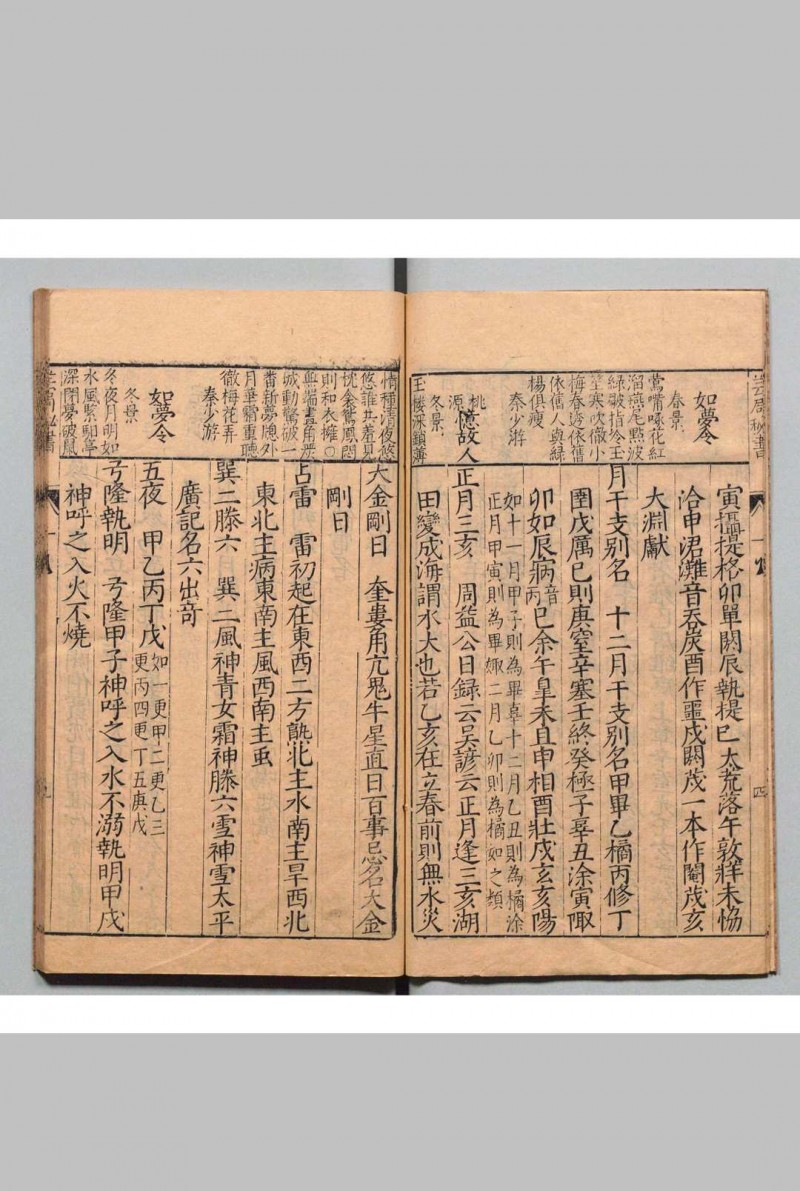 芸窓秘書
如夢令
春景
鶯嘴啄花紅
溜燕尾點波
綠皺指冷玉
笙寒吹徹小
梅春透依舊
依舊人與綠
楊俱瘦
秦少游
桃源憶故人
冬景
玉樓深鎖薄
寅攝提格卯單閼辰執提巳大荒落午敦牂未恊
洽申涒灘音吞炭酉作噩戌閼茂一本作閹茂亥
大淵獻
月干支别名 十二月干支别名甲畢乙橘丙修丁
圉戊厲巳則庚窒辛塞壬終癸極子辜丑涂寅陬
卯如辰寎音丙巳余午皇未且申相酉壯戌亥亥陽
如十一月甲子則為畢辜十二月乙丑則為橘涂
正月甲寅則為畢娵二月乙卯則為橘如之類
正月三亥 周益公日録云吴諺云正月逢三亥湖
田變成海謂水大也若乙亥在立春前則無水災
情種清夜悠
悠誰共羞見
枕衾鴛鳳悶
則和衣擁○
無端畫角嚴
城動驚破一
番新夢牎外
月華霜重聽
徹梅花弄
秦少游
如夢令
冬景
冬夜月明如
水風緊馹亭
深閉夢破鼠
大金剛日 奎婁角亢鬼牛星直日百事忌名大金
剛日
占雷 雷初起在東西二方飢北主水南主旱西北
東北主病東南主風西南主䖝
巽二滕六 巽二風神青女霜神滕六雪神雪太平
廣記名六出竒
五夜 甲乙丙丁戊如一更甲二更乙三
更丙四更丁五庚戊
兮隆執明 兮隆甲子神呼之入水不溺執明甲戌
神呼之入火不燒